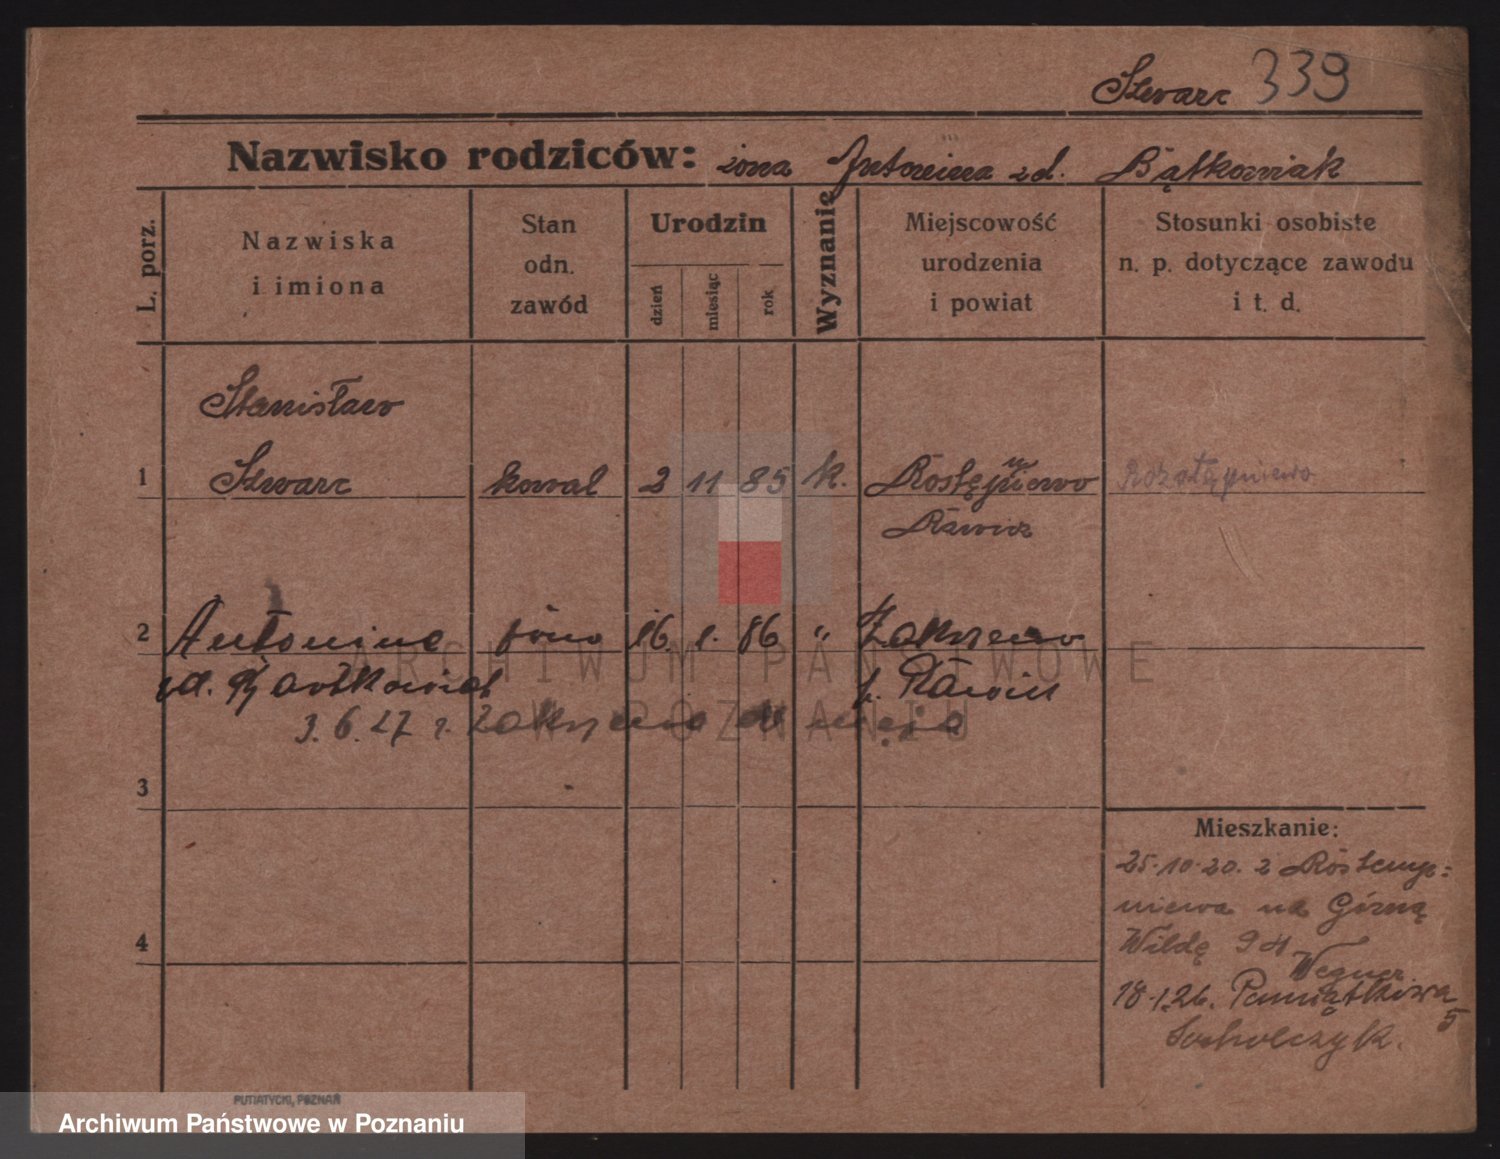 Szwarc 339
Nazwisko rodziców: żona Antonina zd. Bątkowiak
L. porz.
Nazwiska i imiona
Stan odn. zawód
Urodzin
dzień miesiąc rok
Wyznanie
Miejscowość urodzenia i powiat
Stosunki osobiste n. p. dotyczące zawodu i t. d.
Stanisław
1 Szwarc kowal 2 11 85 k. Rostępniewo
Rawicz
2 Antonina żona 16. 1. 86 "
zd. p. Rawicz
3. 6. 27 r.
3
Mieszkanie:
25.10.20. z Rostemp=
niewa na Górną
4
Wildę 94
Wegner
18.1.26. Pamiątkowa
5
ARCHIWUM PAŃSTWOWE
W POZNANIU
PUTIATYCKI, POZNAŃ
Archiwum Państwowe w Poznaniu